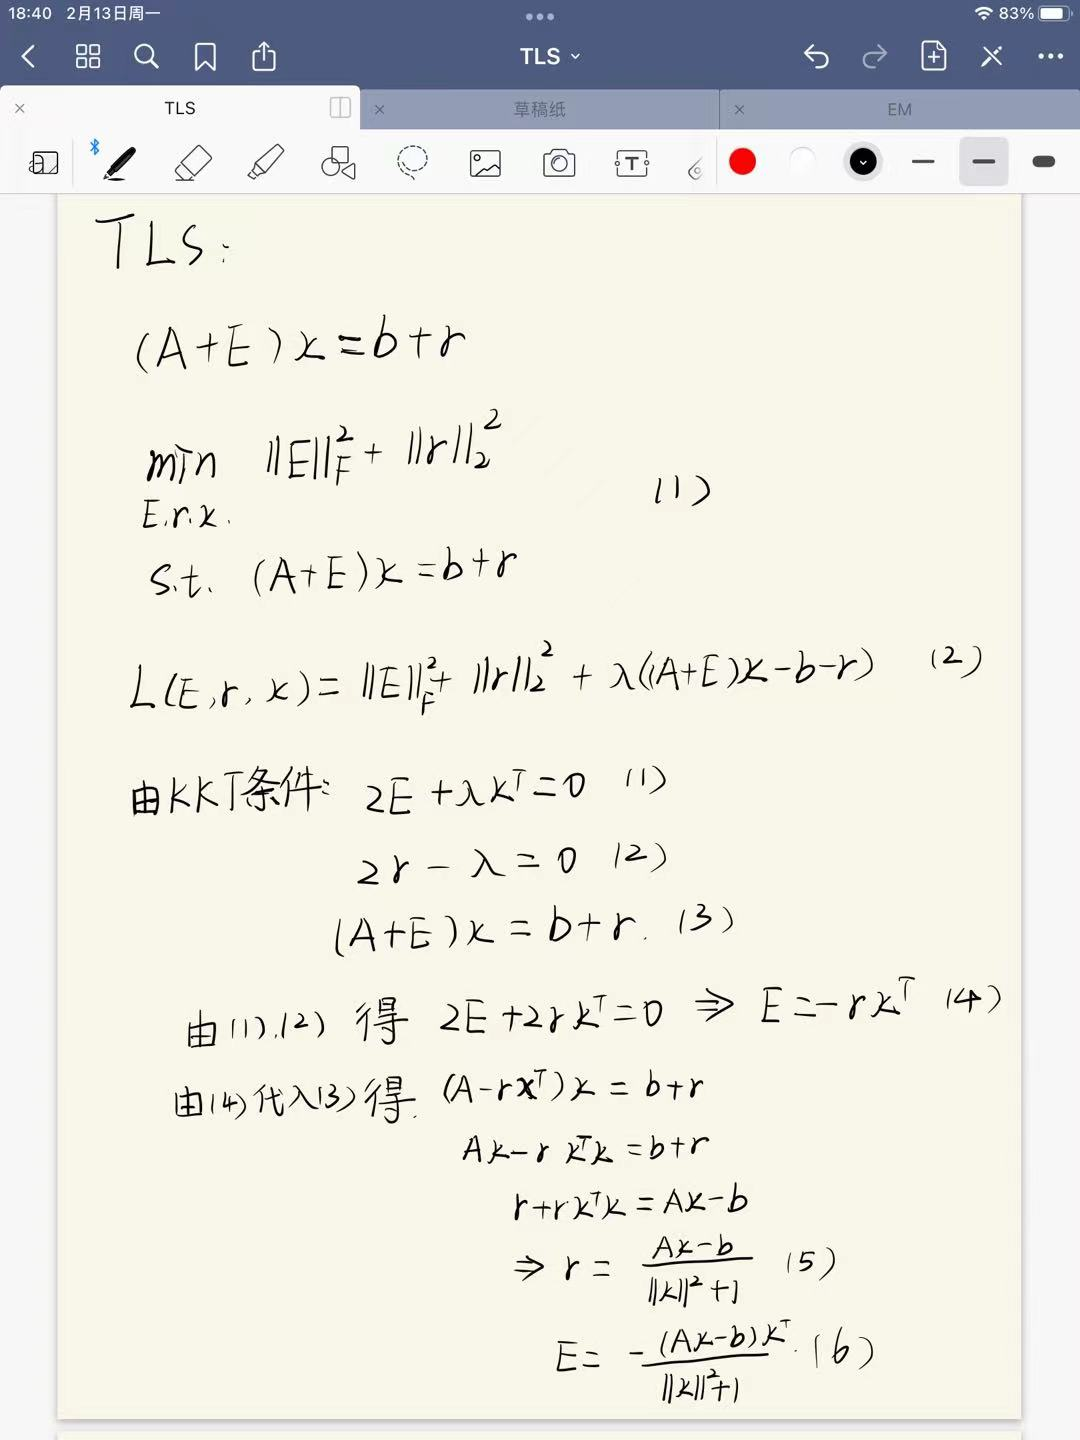 18:40 2月13日周一 83%
TLS
TLS 草稿纸 EM
TLS:
(A+E)x=b+r
min ‖E‖_F^2 + ‖r‖_2^2
E.r.x. (1)
s.t. (A+E)x=b+r
L(E,r,x)=‖E‖_F^2+ ‖r‖_2^2 + λ((A+E)x-b-r) (2)
由KKT条件: 2E+λx^T=0 (1)
2r-λ=0 (2)
(A+E)x=b+r. (3)
由(1).(2) 得 2E+2rx^T=0 ⇒ E=-rx^T (4)
由(4)代入(3)得. (A-rx^T)x=b+r
Ax-r x^Tx=b+r
r+rx^Tx=Ax-b
⇒ r= (Ax-b)/(‖x‖^2+1) (5)
E= -(Ax-b)x^T/(‖x‖^2+1). (6)